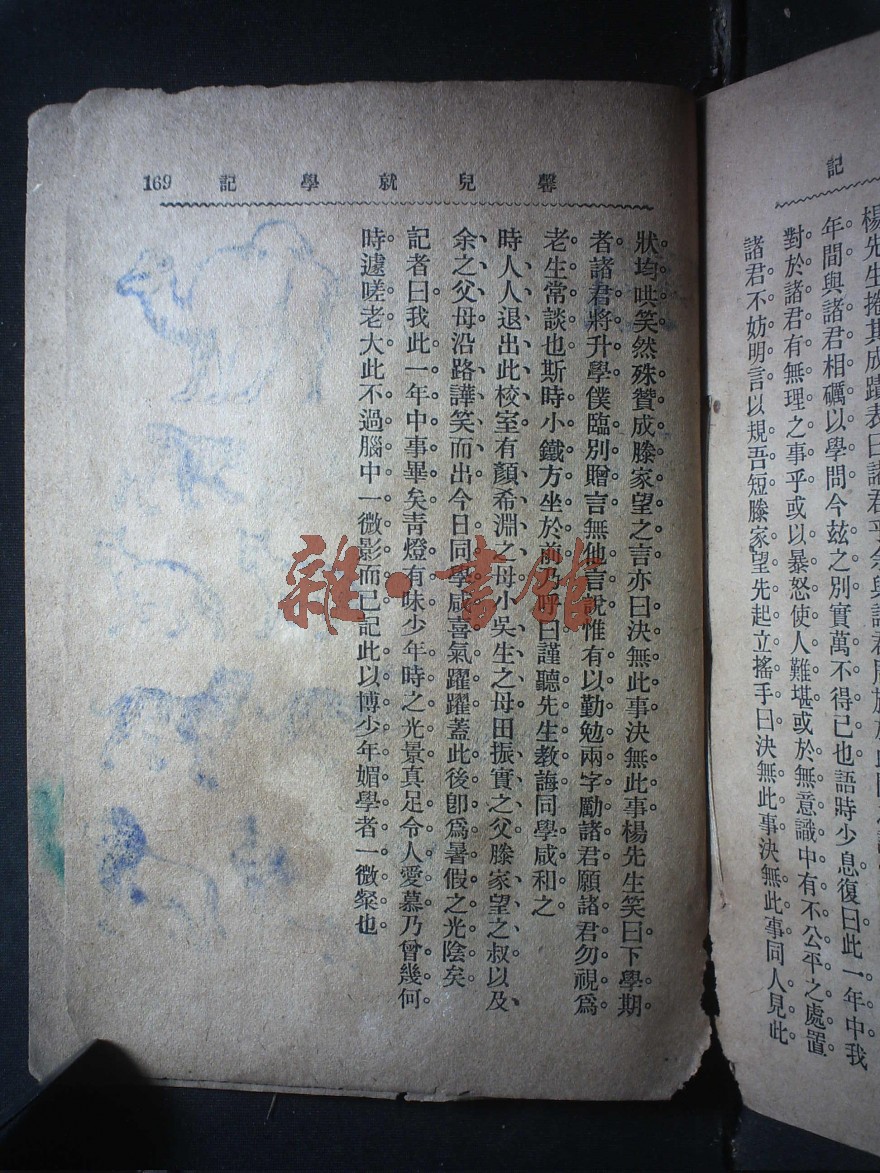 記
楊先生捲其成蹟表曰諸君乎余與諸君
年間與諸君相礪以學問今茲之別實萬不得已也語時少息復曰此一年中我
對於諸君有無理之事乎或以暴怒使人難堪或於無意識中有不公平之處置
諸君不妨明言以規吾短滕家望先起立搖手曰決無此事決無此事同人見此
馨兒就學記 169
狀均哄笑然殊贊成滕家望之言亦曰決無此事決無此事楊先生笑曰下學期
者諸君將升學僕臨別贈言無他言說惟有以勤勉兩字勵諸君願諸君勿視爲
老生常談也斯時小鐵方坐於前乃呼曰謹聽先生教誨同學咸和之
時人人退出此校室有顏希淵之母小吳生之母田振實之父滕家望之叔以及
余之父母沿路譁笑而出今日同學咸喜氣躍躍蓋此後卽爲暑假之光陰矣
記者曰我此一年中事畢矣靑燈有味少年時之光景真足令人愛慕乃曾幾何
時遽嗟老大此不過腦中一微影而已記此以博少年媚學者一微粲也
雜·書館